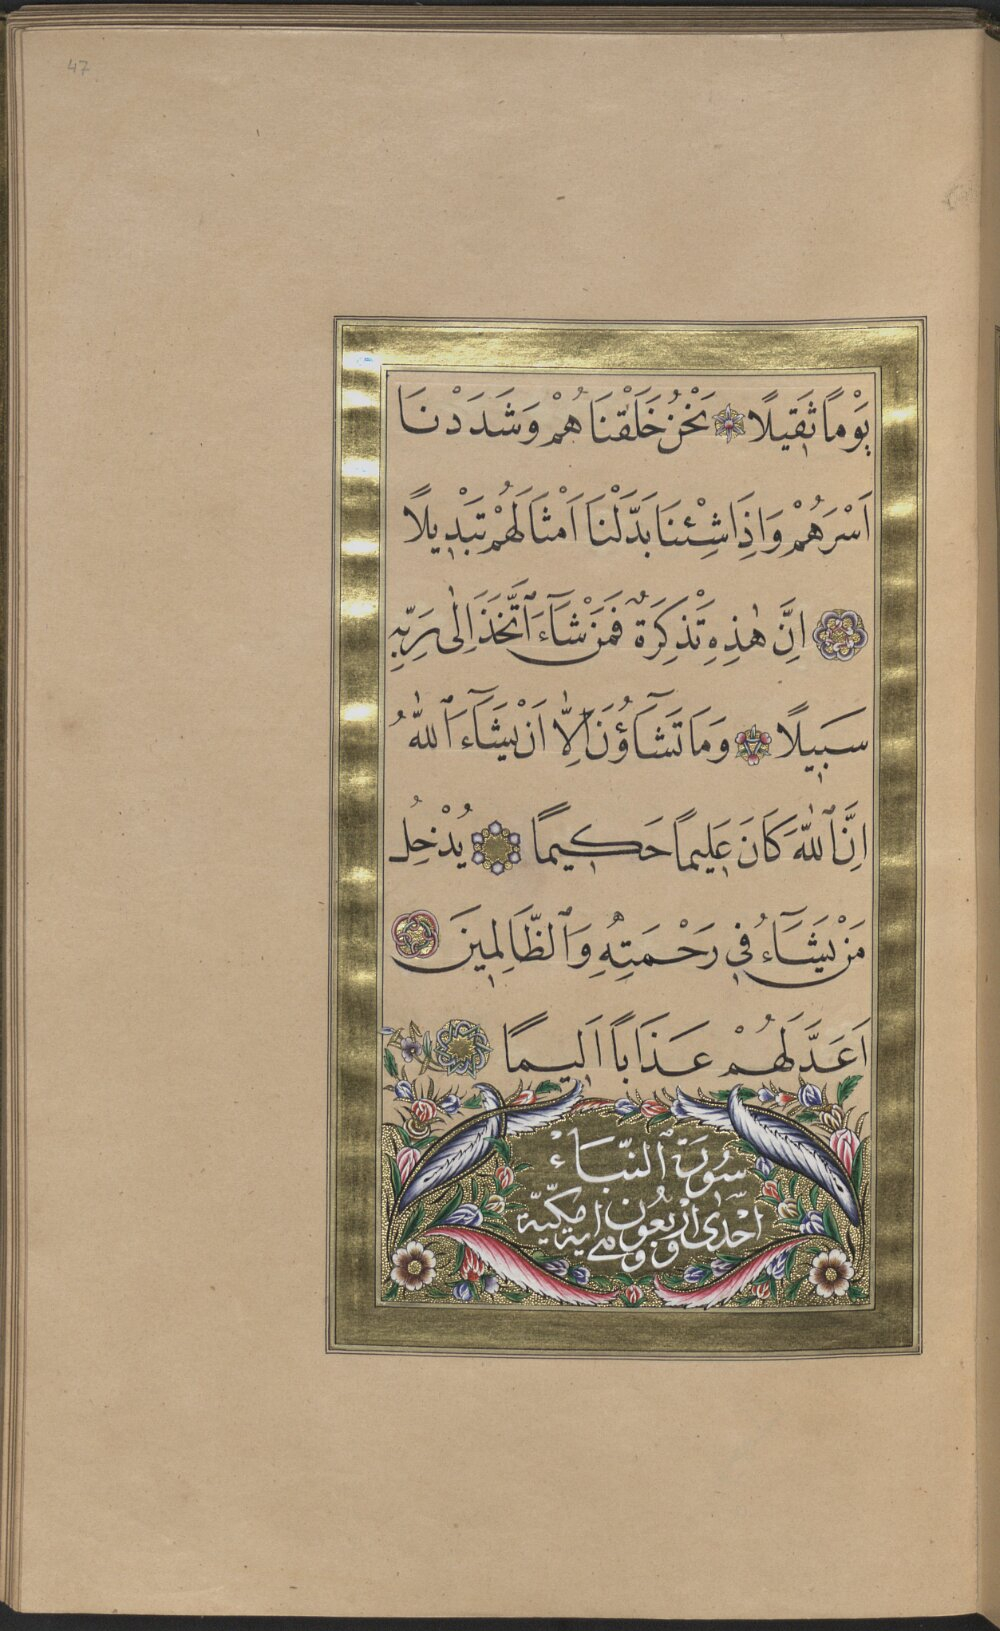 47
يَوْمًا ثَقِيلًا نَحْنُ خَلَقْنَاهُمْ وَشَدَدْنَا
اَسْرَهُمْ وَاِذَا شِئْنَا بَدَّلْنَا اَمْثَالَهُمْ تَبْدِيلًا
اِنَّ هٰذِهِ تَذْكِرَةٌ فَمَنْ شَآءَ ٱتَّخَذَ اِلٰى رَبِّهِ
سَبِيلًا وَمَا تَشَآؤُنَ اِلَّا اَنْ يَشَآءَ ٱللّٰهُ
اِنَّ ٱللّٰهَ كَانَ عَلِيمًا حَكِيمًا يُدْخِلُ
مَنْ يَشَآءُ فِي رَحْمَتِهِ وَٱلظَّالِمِينَ
اَعَدَّ لَهُمْ عَذَابًا اَلِيمًا
سُورَة ٱلنَّبَاءْ
اَحْدٰى وَاَرْبَعُونَ اية مكيّة